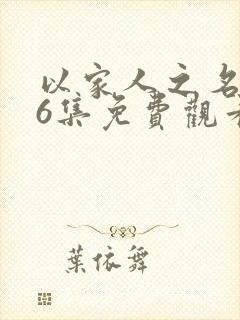 以家人之名
6集免費觀看
葉依舞